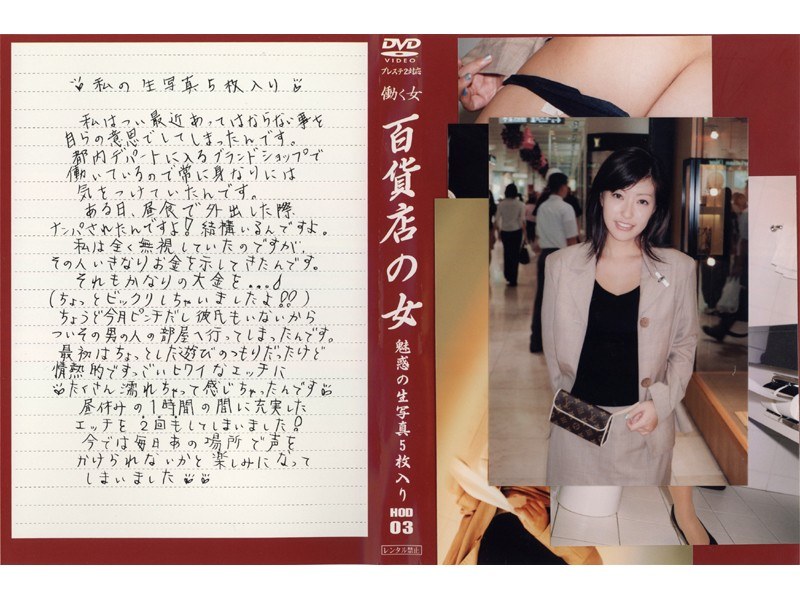 私の生写真5枚入り
私はつい最近あってはならない事を
自らの意思でしてしまったんです。
都内デパートに入るブランドショップで
働いているので常に身なりには
気をつけていたんです。
ある日、昼食で外出した際
ナンパされたんですよ!結構いるんですよ。
私は全く無視していたのですが、
その人いきなりお金を示してきたんです。
それもかなりの大金を...!
(ちょっとビックリしちゃいましたよ!?)
ちょうど今月ピンチだし彼氏もいないから
ついその男の人の部屋へ行ってしまったんです。
最初はちょっとした遊びのつもりだったけど
情熱的ですっごいヒワイなエッチに
たくさん濡れちゃって感じちゃったんです
昼休みの1時間の間に充実した
エッチを2回もしてしまいました!
今では毎日あの場所で声を
かけられないかと楽しみになって
しまいました
DVD
VIDEO
プレステ2対応
働く女
百貨店の女
魅惑の生写真5枚入り
HOD
03
レンタル禁止